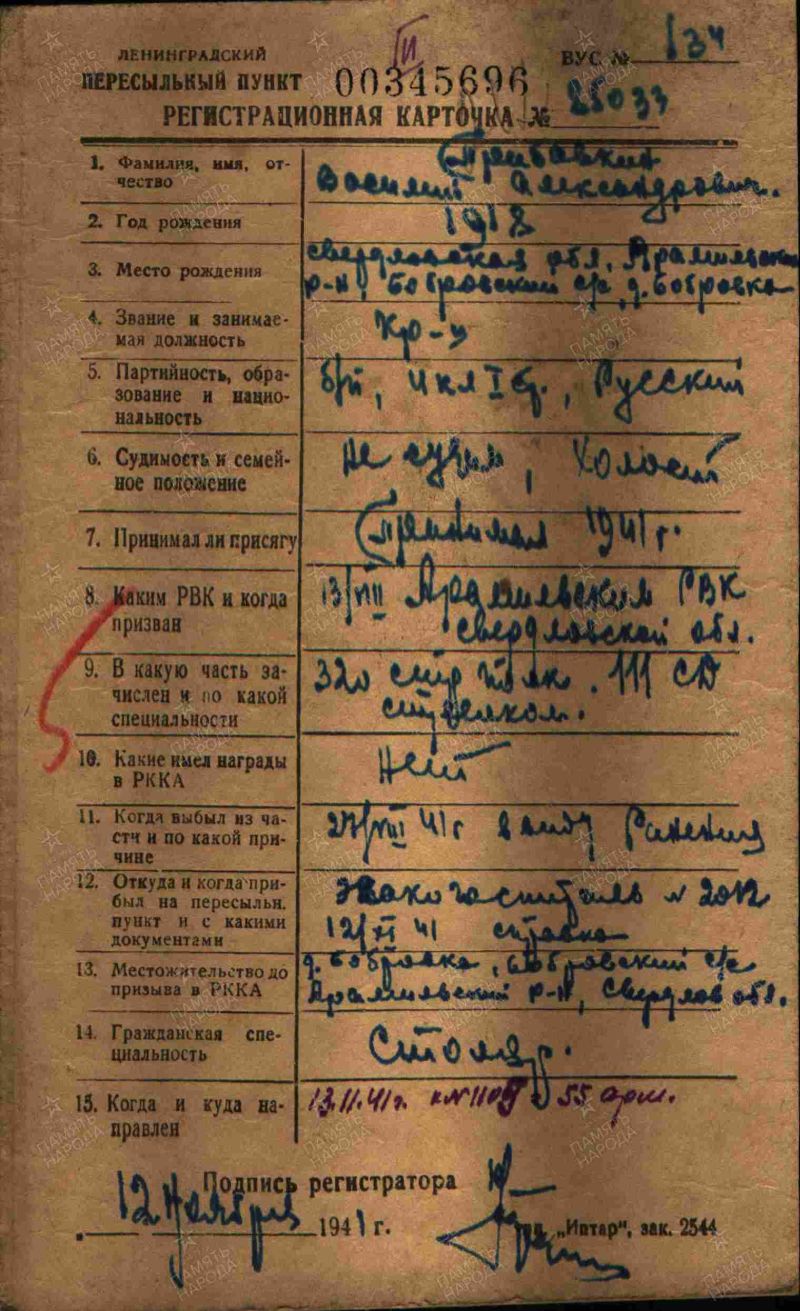 ЛЕНИНГРАДСКИЙ
ПЕРЕСЫЛЬНЫЙ ПУНКТ 00345696
ВУС № 134
РЕГИСТРАЦИОННАЯ КАРТОЧКА № 25033
1. Фамилия, имя, от-
чество
Василий Александрович.
2. Год рождения
1918
3. Место рождения
Свердловская обл, Арамильский
р-н, Бобровский с/с д. Бобровка
4. Звание и занимае-
мая должность
Кр-ц
5. Партийность, обра-
зование и нацио-
нальность
б/п, 4 кл, Русский
6. Судимость и семей-
ное положение
не судим, холост
7. Принимал ли присягу
Принимал 1941 г.
8. Каким РВК и когда
призван
13/VII Арамильским РВК
Свердловской обл.
9. В какую часть за-
числен и по какой
специальности
320 стр полк. 111 СД
стрелком.
10. Какие имел награды
в РККА
Нет
11. Когда выбыл из ча-
сти и по какой при-
чине
VIII 41 г ввиду Ранения
12. Откуда и когда при-
был на пересыльн.
пункт и с какими
документами
Эвакогоспиталь № 2012
12/XI 41 справка
13. Местожительство до
призыва в РККА
д. Бобровка, Бобровский с/с
Арамильский р-н, Свердлов обл.
14. Гражданская спе-
циальность
Столяр.
15. Когда и куда на-
правлен
13.11.41г. 55 арм.
Подпись регистратора
12 Ноября 1941 г.
„Ивтар“, зак. 2544
ПАМЯТЬ
НАРОДА